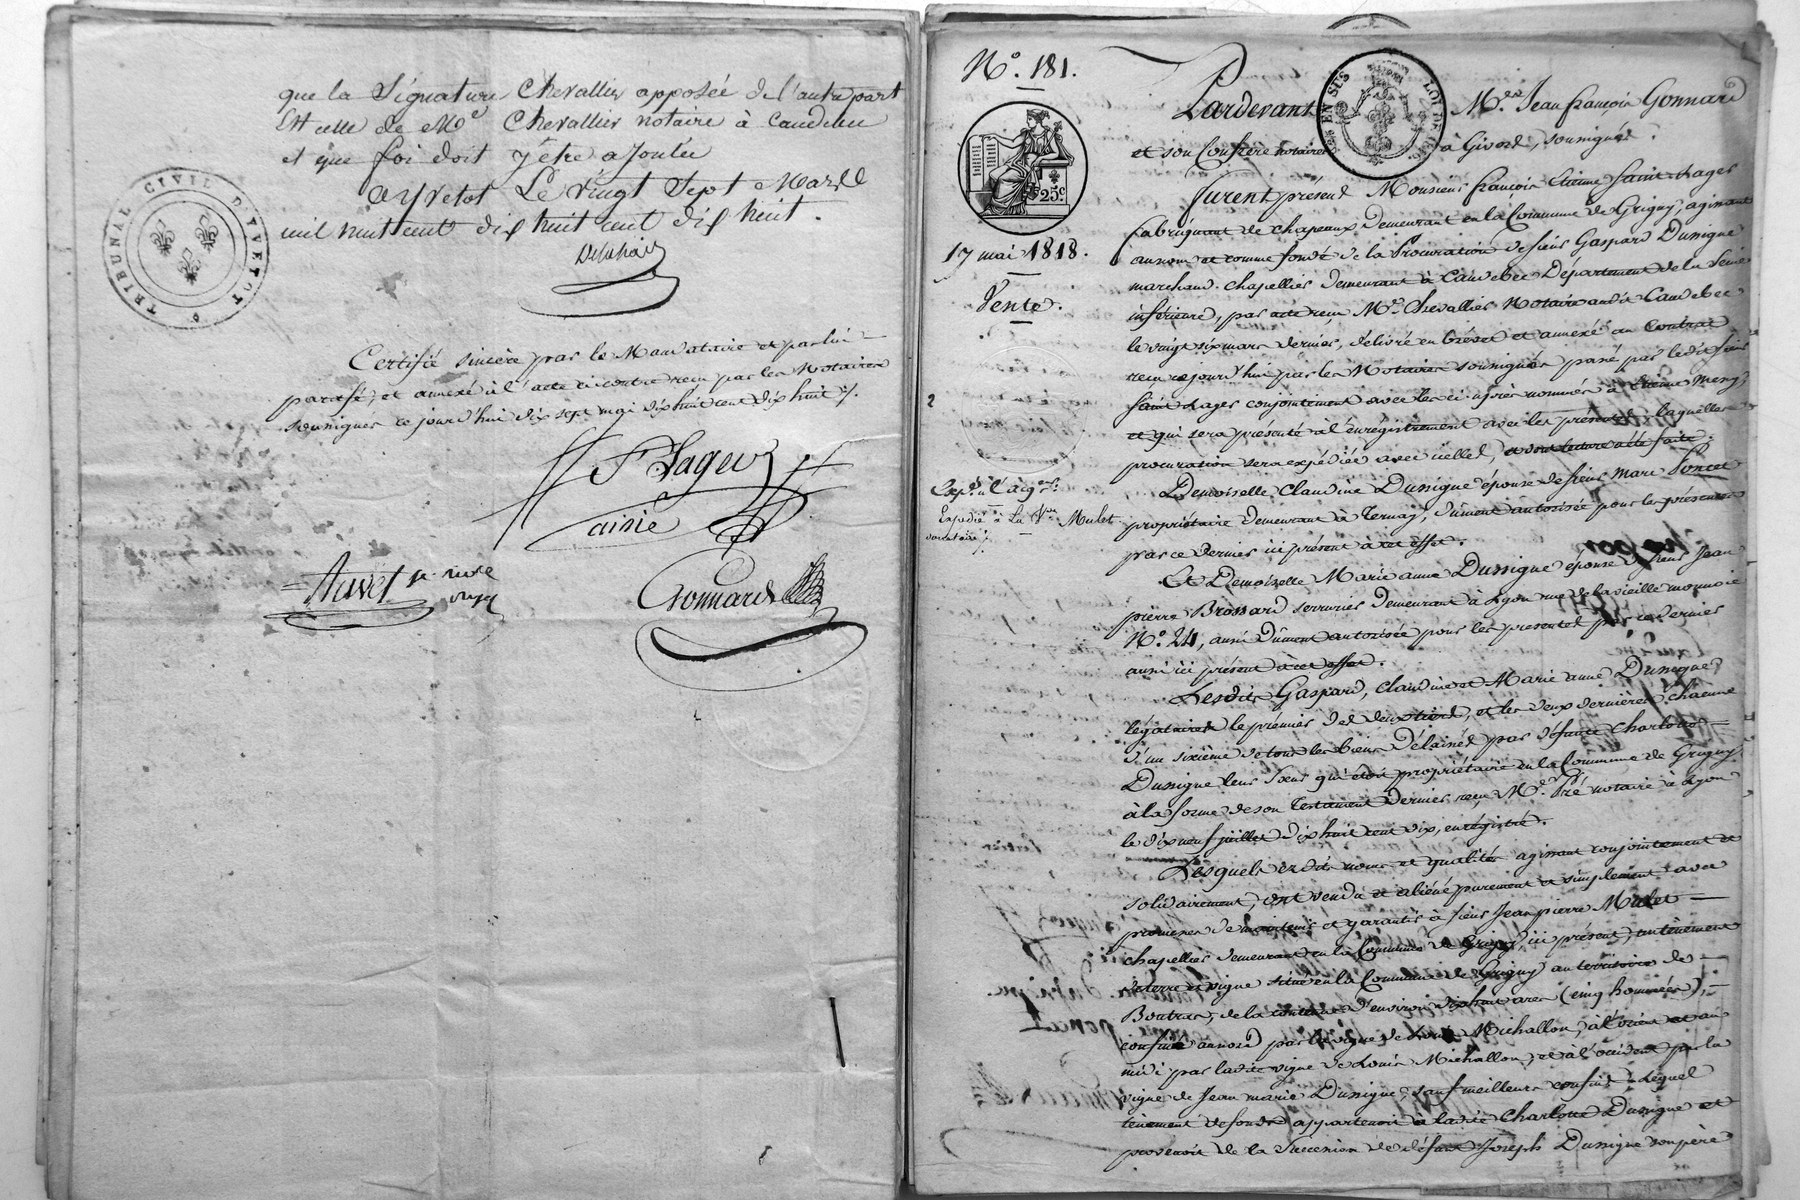 que la Signature Chevallier apposée de l'autre part
Est celle de Me Chevallier notaire à Caudebec
et que foi doit y être ajoutée
a Yvetot Le vingt Sept Mars
mil huit cent dix huit cent dix huit.
TRIBUNAL CIVIL D'YVETOT
Certifié sincère par le Mandataire et par lui
paraphé, et annexé à l'acte ci contre reçu par les Notaires
soussignés ce jourd'hui dix sept mai dix huit cent dix huit ./.
St Lager
ainé
Gonnard
N° 181.
25c
17 mai 1818.
Vente.
2
Expédié à La Mulet
Pardevant Mes Jean françois Gonnard
et son Confrère notaires à Givors, soussignés.
furent présent Monsieur françois Etienne Saint Lager
fabriquant de chapeaux demeurant en la Commune de Grigny, agissant
au nom et comme fondé de la Procuration de sieur Gaspard Dussigne
marchand chapellier demeurant à Caudebec Département de la Seine
inférieure, par acte reçu Me Chevallier Notaire audit Caudebec
le vingt six mars dernier, délivré en brévet et annexé au Contrat
reçu cejourd'hui par les Notaires soussignés passé par ledit sieur
Saint Lager conjointement avec les ci après nommés à Etienne Meny,
et qui sera présenté à l'enregistrement avec les présentes, laquelle
procuration sera expédiée avec icelles, et dont lecture a été faite.
Demoiselle Claudine Dussigne épouse de sieur Marc Poncet
propriétaire demeurant à Ternay, dûment autorisée pour les présentes
par ce dernier ici présent à cet effet.
Et Demoiselle Marie anne Dussigne épouse de sieur Jean
pierre Brossard serrurier demeurant à Lyon rue de la vieille monnoie
N° 24, aussi dûment autorisée pour les presentes par ce dernier
aussi ici présent à cet effet.
Lesdits Gaspard, Claudine et Marie anne Dussigne
légataires le premier des deux tiers, et les deux dernières chacune
d'un sixième de tous les biens délaissés par défunte Charlotte
Dussigne leur Sœur qui étoit propriétaire en la Commune de Grigny
à la forme de son Testament dernier reçu Me Pré notaire à Lyon
le dix neuf juillet dix huit cent dix, enrégistré.
Lesquels ezdits noms et qualités agissant conjointement et
solidairement, ont vendu et aliéné purement et simplement avec
promesses de maintenir et garantir à sieur Jean pierre Mulet
chapellier demeurant en la Commune de Grigny ici présent, un tènement
de terre et vigne situé en la Commune de Grigny au territoire de
Boutras, de la contenue d'environ dix huit ares (cinq hommées),
confiné au nord par la vigne de Louis Michallon, à l'orient et au
midi par ladite vigne de Louis Michallon, et à l'occident par la
vigne de Jean marie Dussigne, sauf meilleurs confins. Lequel
tènement de fonds appartenoit à ladite Charlotte Dussigne et
provenoit de la Succession de défunt Joseph Dussigne son père